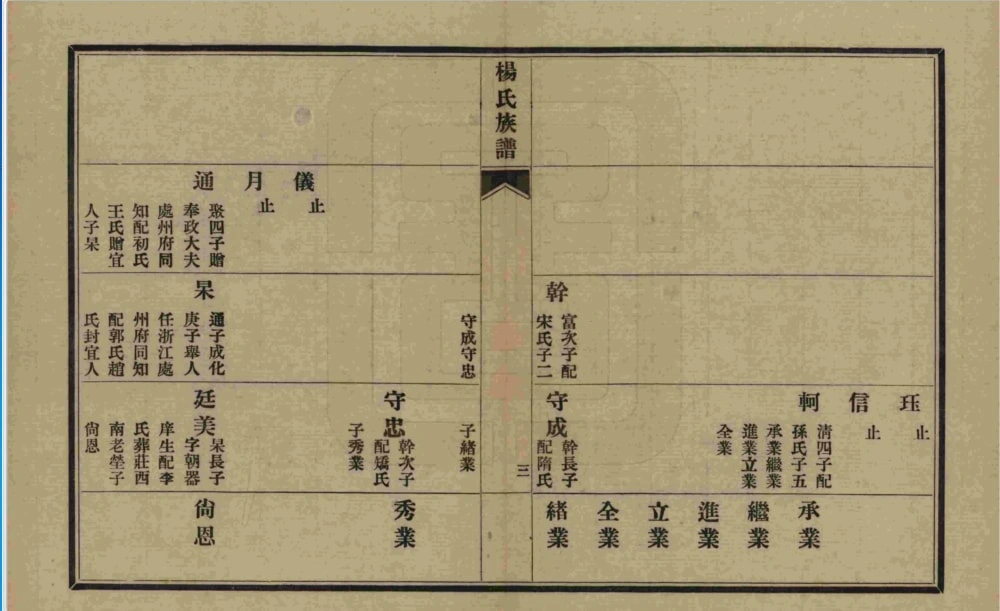 楊氏族譜
三
幹
富次子配
宋氏子二
守成守忠
珏
止
信
止
軻
清四子配
孫氏子五
承業繼業
進業立業
全業
守成
幹長子
配隋氏
子緒業
承業
繼業
進業
立業
全業
緒業
儀
止
月
止
通
聚四子贈
奉政大夫
處州府同
知配初氏
王氏贈宜
人子杲
杲
通子成化
庚子舉人
任浙江處
州府同知
配郭氏趙
氏封宜人
守忠
幹次子
配矯氏
子秀業
廷美
杲長子
字朝器
庠生配李
氏葬莊西
南老塋子
尙恩
秀業
尙恩